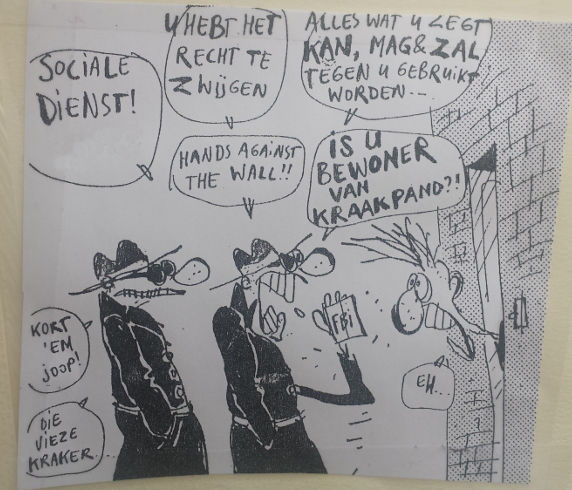 SOCIALE
DIENST!
U HEBT HET
RECHT TE
ZWIJGEN
ALLES WAT U ZEGT
KAN, MAG & ZAL
TEGEN U GEBRUIKT
WORDEN...
HANDS AGAINST
THE WALL!!
IS U
BEWONER
VAN
KRAAKPAND?!
FBI
EH...
KORT
'EM
JOOP!
DIE
VIEZE
KRAKER...